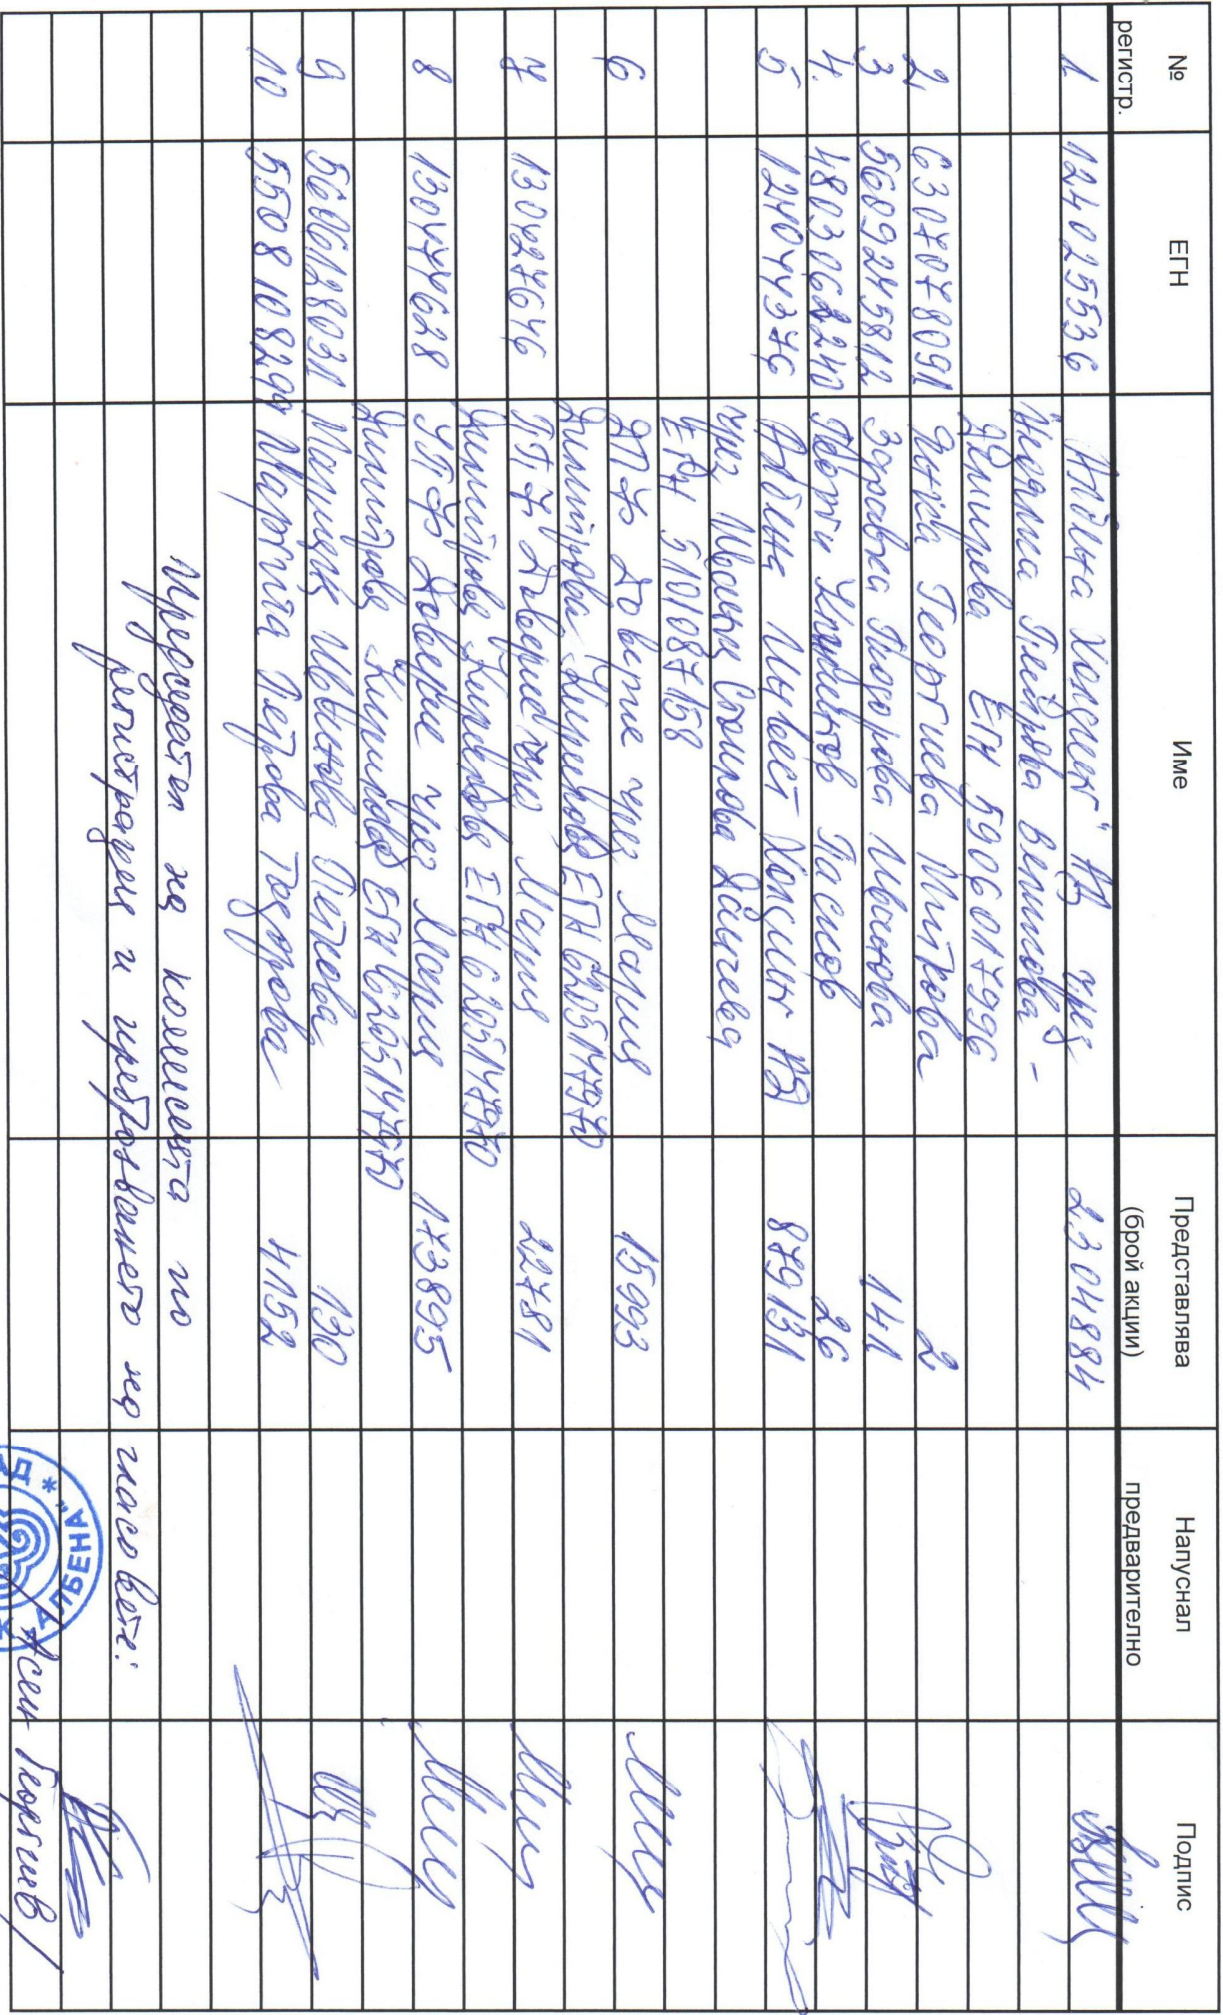 № регистр. ЕГН Име Представлява (брой акции) Напуснал предварително Подпис
1 124025536 "Албена Холдинг" АД чрез 2304884
Недялка Пейрова Великова -
ЕГН 5906017996
2 6307078091 Янка Георгиева Миткова 2
3 5609245812 Здравка Тодорова Иванова 141
4. 4803062240 Георги Пасков 26
5 124044376 Албена Инвест Холдинг АД 879131
чрез Иванка Стоилова Дянчева
ЕГН 5101087158
6 ДПФ Доверие чрез Мария 15993
Димитрова Кирилова ЕГН 6205147970
7 130427646 ППФ Доверие чрез Мария 22781
Димитрова Кирилова ЕГН 6205147970
8 130477628 УПФ Доверие чрез Мария 173895
Димитрова Кирилова ЕГН 6205147970
9 5606128031 Марийка Иванова Петкова 130
10 5508108299 Маргита Петрова Тодорова 4152
Председател на комисията по
регистрация и преброяването на гласовете:
"АЛБЕНА"
/Асен Георгиев/